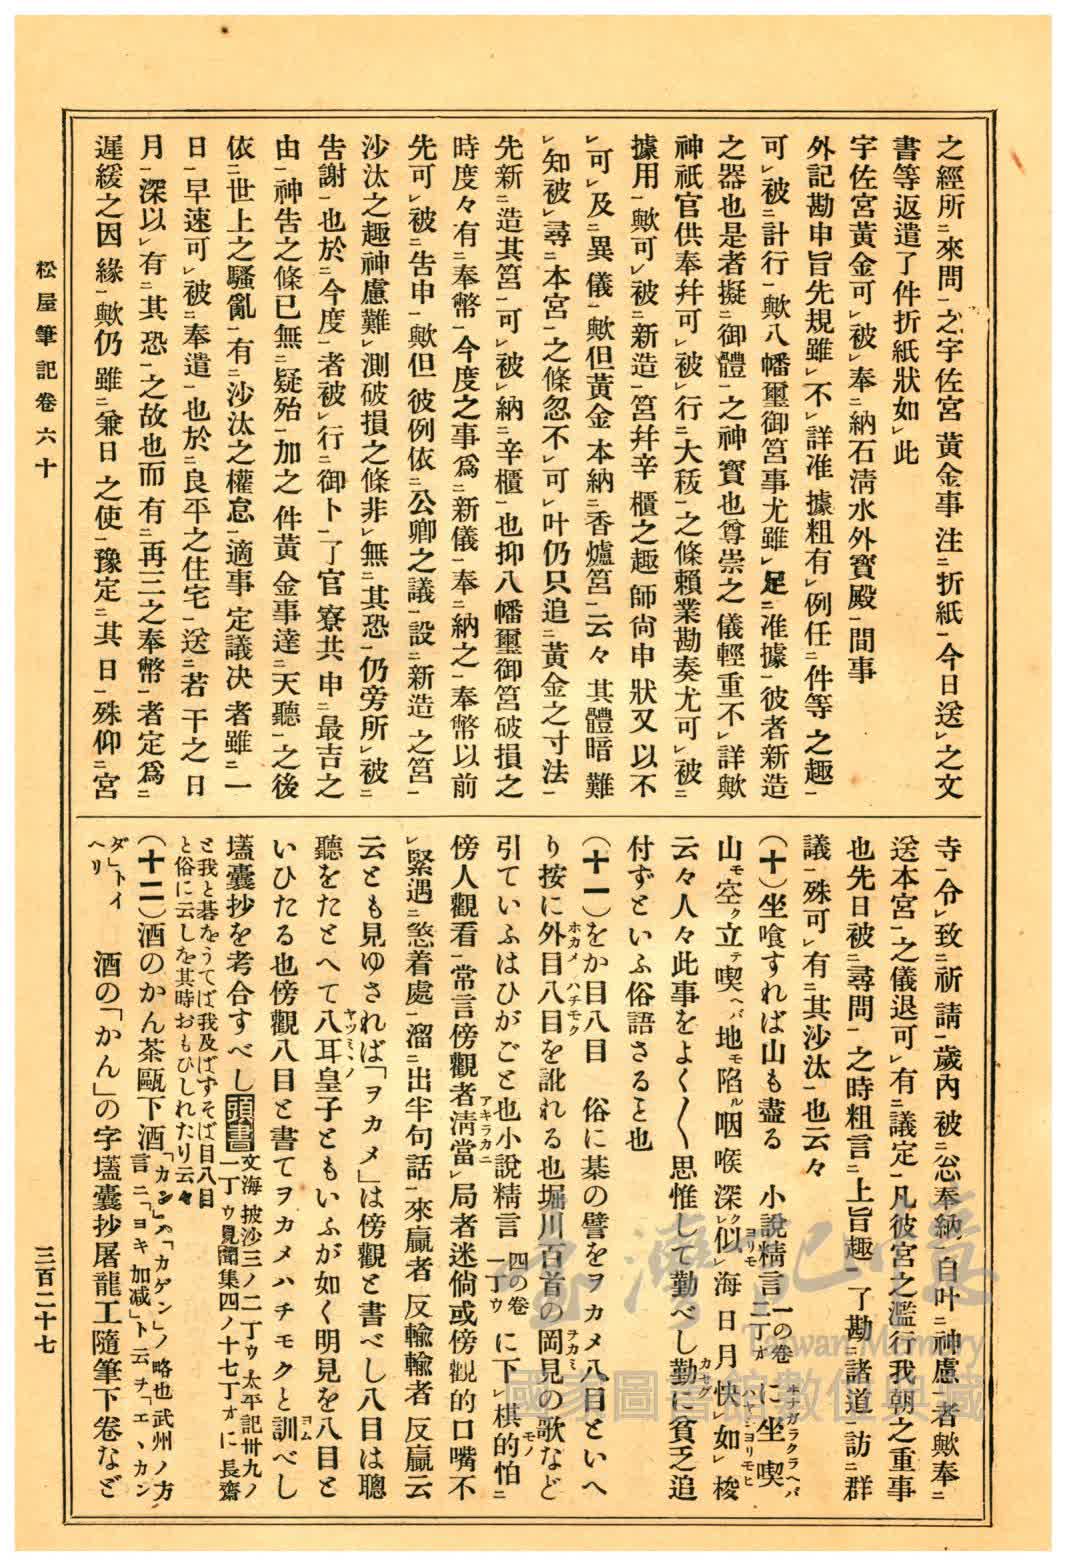 之經所㆓來問㆒之宇佐宮黃金事注㆓折紙㆒今日送㆑之文
書等返遣了件折紙狀如㆑此
宇佐宮黃金可㆑被㆑奉㆓納石淸水外寶殿㆒間事
外記勘申旨先規雖㆑不㆑詳准據粗有㆑例任㆓件等之趣㆒
可㆑被㆓計行㆒歟八幡璽御筥事尤雖㆑足㆓准據㆒彼者新造
之器也是者擬㆓御體㆒之神寶也尊崇之儀輕重不㆑詳歟
神祇官供奉幷可㆑被㆑行㆓大秡㆒之條賴業勘奏尤可㆑被㆓
據用㆒歟可㆑被㆓新造㆒筥幷辛櫃之趣師尙申狀又以不
㆑可㆑及㆓異儀㆒歟但黃金本納㆓香爐筥㆒云々其體暗難
㆑知被㆑尋㆓本宮㆒之條忽不㆑可㆑叶仍只追㆓黃金之寸法㆒
先新㆓造其筥㆒可㆑被㆑納㆓辛櫃㆒也抑八幡璽御筥破損之
時度々有㆓奉幣㆒今度之事爲㆓新儀㆒奉㆓納之㆒奉幣以前
先可㆑被㆓告申㆒歟但彼例依㆓公卿之議㆒設㆓新造之筥㆒
沙汰之趣神慮難㆑測破損之條非㆑無㆓其恐㆒仍旁所㆑被㆓
告謝㆒也於㆓今度㆒者被㆑行㆓御卜㆒了官寮共申㆓最吉之
由㆒神告之條已無㆓疑殆㆒加之件黃金事達㆓天聽㆒之後
依㆓世上之騷亂㆒有㆓沙汰之權怠㆒適事定議决者雖㆓一
日㆒早速可㆑被㆓奉遣㆒也於㆓良平之住宅㆒送㆓若干之日
月㆒深以㆑有㆓其恐㆒之故也而有㆓再三之奉幣㆒者定爲㆓
遲緩之因緣㆒歟仍雖㆓兼日之使㆒豫定㆓其日㆒殊仰㆓宮
寺㆒令㆑致㆓祈請㆒歲內被㆓忩奉納㆒自叶㆓神慮㆒者歟奉㆓
送本宮㆒之儀退可㆑有㆓議定㆒凡彼宮之濫行我朝之重事
也先日被㆓尋問㆒之時粗言㆓上旨趣㆒了勘㆓諸道㆒訪㆓群
議㆒殊可㆑有㆓其沙汰㆒也云々
(十)坐喰すれば山も盡る　小說精言一の卷二丁オに坐喫
山モ空ク立テ喫ヘバ地モ陷ル咽喉深ク似ヨリモ㆑海日月快㆑如㆑梭
云々人々此事をよく〱思惟して勤べし勤に貧乏追
付ずといふ俗語さるヿ也
(十一)をか目八目　俗に棊の譬をヲカメ八目といへ
り按に外目八目を訛れる也堀川百首の岡見の歌など
引ていふはひがごと也小說精言四の卷一丁ウに下㆑棋的怕㆓
傍人觀看㆒常言傍觀者淸當㆑局者迷倘或傍觀的口嘴不
㆑緊遇㆓慾着處㆒溜㆓出半句話㆒來贏者反輸輸者反贏云
云とも見ゆされば「ヲカメ」は傍觀と書べし八目は聰
聽をたとへて八耳皇子ともいふが如く明見を八目と
いひたる也傍觀八目と書てヲカメハチモクと訓べし
壒囊抄を考合すべし頭書文海披沙三ノ二丁ウ太平記卅九ノ一丁ウ見聞集四ノ十七丁オに長齋
と我と碁をうてば我及ばずそば目八目
と俗に云しを其時おもひしれたり云々
(十二)酒のかん茶甌下酒「カン」ハ「カゲン」ノ略也武州ノ方言ニ「ヨキ加減」ト云ヲ「エヽカン
ダ」トイヘリ　酒の「かん」の字壒囊抄屠龍工隨筆下卷など
松屋筆記卷六十
三百二十七
臺灣記憶
Taiwan Memory
國家圖書館數位典藏